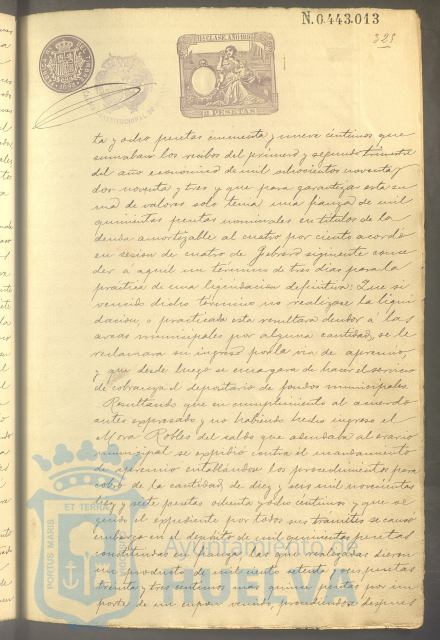 N.0.443.013
323
11ª CLASE. AÑO 1893
PESETAS
ta y ocho pesetas cincuenta y nueve céntimos que
sumaban los recibos del primero y segundo trimestre
del año economico de mil ochocientos noventa y
dos noventa y tres y que para garantizar esta su
ma de valores solo tenia una fianza de mil
quinientas pesetas nominales en titulos de la
deuda amortizable al cuatro por ciento acordó
en sesion de cuatro de Febrero siguiente conce
der a aquel un término de tres dias para la
práctica de una liquidacion definitiva: Que si
vencido dicho término no realizase la liqui
dacion, o practicada esta resultara deudor a las
arcas municipales por alguna cantidad, se le
reclamara su ingreso por la via de apremio,
y que desde luego se encargara de hacer el servicio
de cobranza el depositario de fondos municipales.
Resultando que en cumplimiento al acuerdo
antes expresado y no habiendo hecho ingreso el
Mora Robles del saldo que adeudaba al erario
municipal se expidió contra él mandamiento
de apremio entablándose los procedimientos para
cobro de la cantidad de diez y seis mil novecientas
diez y siete pesetas ochenta y ocho céntimos y que se
guido el expediente por todos sus tramites se causó
embargo en el depósito de mil quinientas pesetas
constituido en fianza, las que realizadas dieron
un producto de mil ciento setenta y seis pesetas
treinta y tres centimos mas quince pesetas por im
porte de un cupon vencido, procediendose despues
PORTUS MARIS
ET TERRÆ
CUSTODIA
Ayuntamiento de
HUELVA